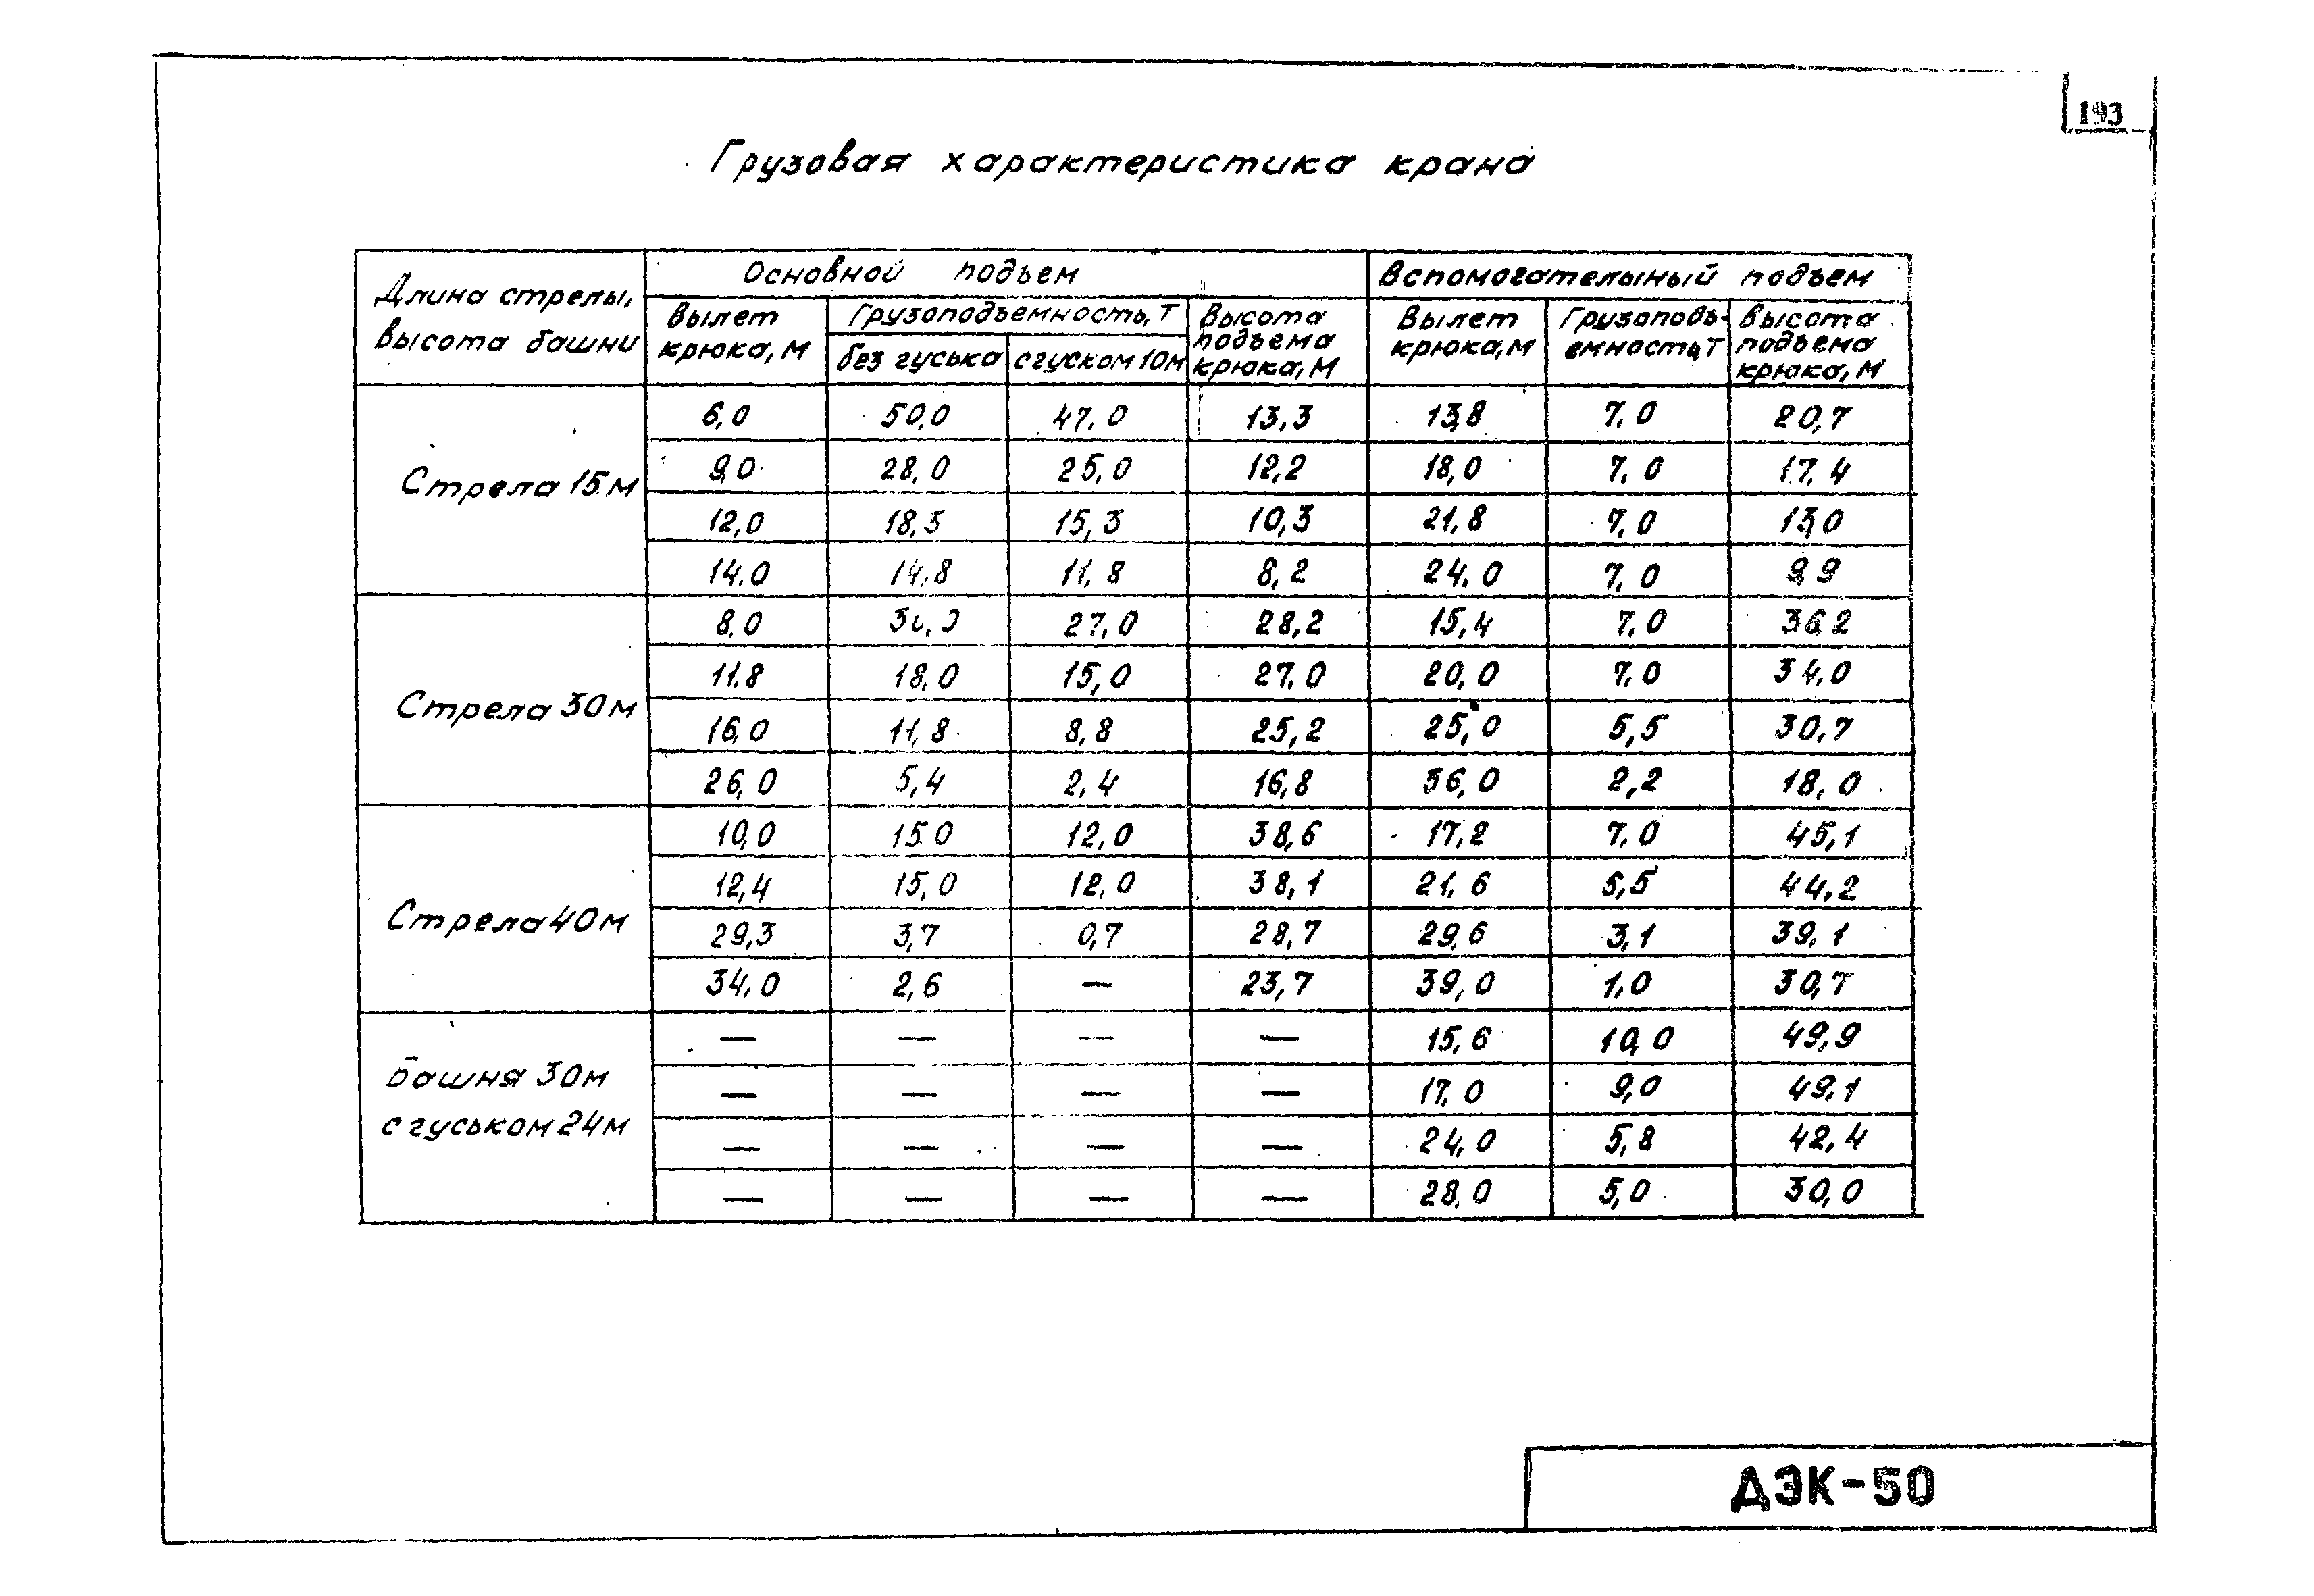 193
Грузовая характеристика крана
Длина стрелы, высота башни
Основной подъем
Вспомогательный подъем
Вылет крюка, м
Грузоподъемность, т
Высота подъема крюка, м
Вылет крюка, м
Грузоподъ-емность, т
Высота подъема крюка, м
без гуська
с гуском 10м
Стрела 15м
6,0 50,0 47,0 13,3 13,8 7,0 20,7
9,0 28,0 25,0 12,2 18,0 7,0 17,4
12,0 18,3 15,3 10,3 21,8 7,0 13,0
14,0 14,8 11,8 8,2 24,0 7,0 9,9
Стрела 30м
8,0 27,0 28,2 15,4 7,0 36,2
11,8 18,0 15,0 27,0 20,0 7,0 34,0
16,0 11,8 8,8 25,2 25,0 5,5 30,7
26,0 5,4 2,4 16,8 36,0 2,2 18,0
Стрела 40м
10,0 15,0 12,0 38,6 17,2 7,0 45,1
12,4 15,0 12,0 38,1 21,6 5,5 44,2
29,3 3,7 0,7 28,7 29,6 3,1 39,1
34,0 2,6 — 23,7 39,0 1,0 30,7
Башня 30м
с гуськом 24м
— — — — 15,6 10,0 49,9
— — — — 17,0 9,0 49,1
— — — — 24,0 5,8 42,4
— — — — 28,0 5,0 30,0
ДЭК-50